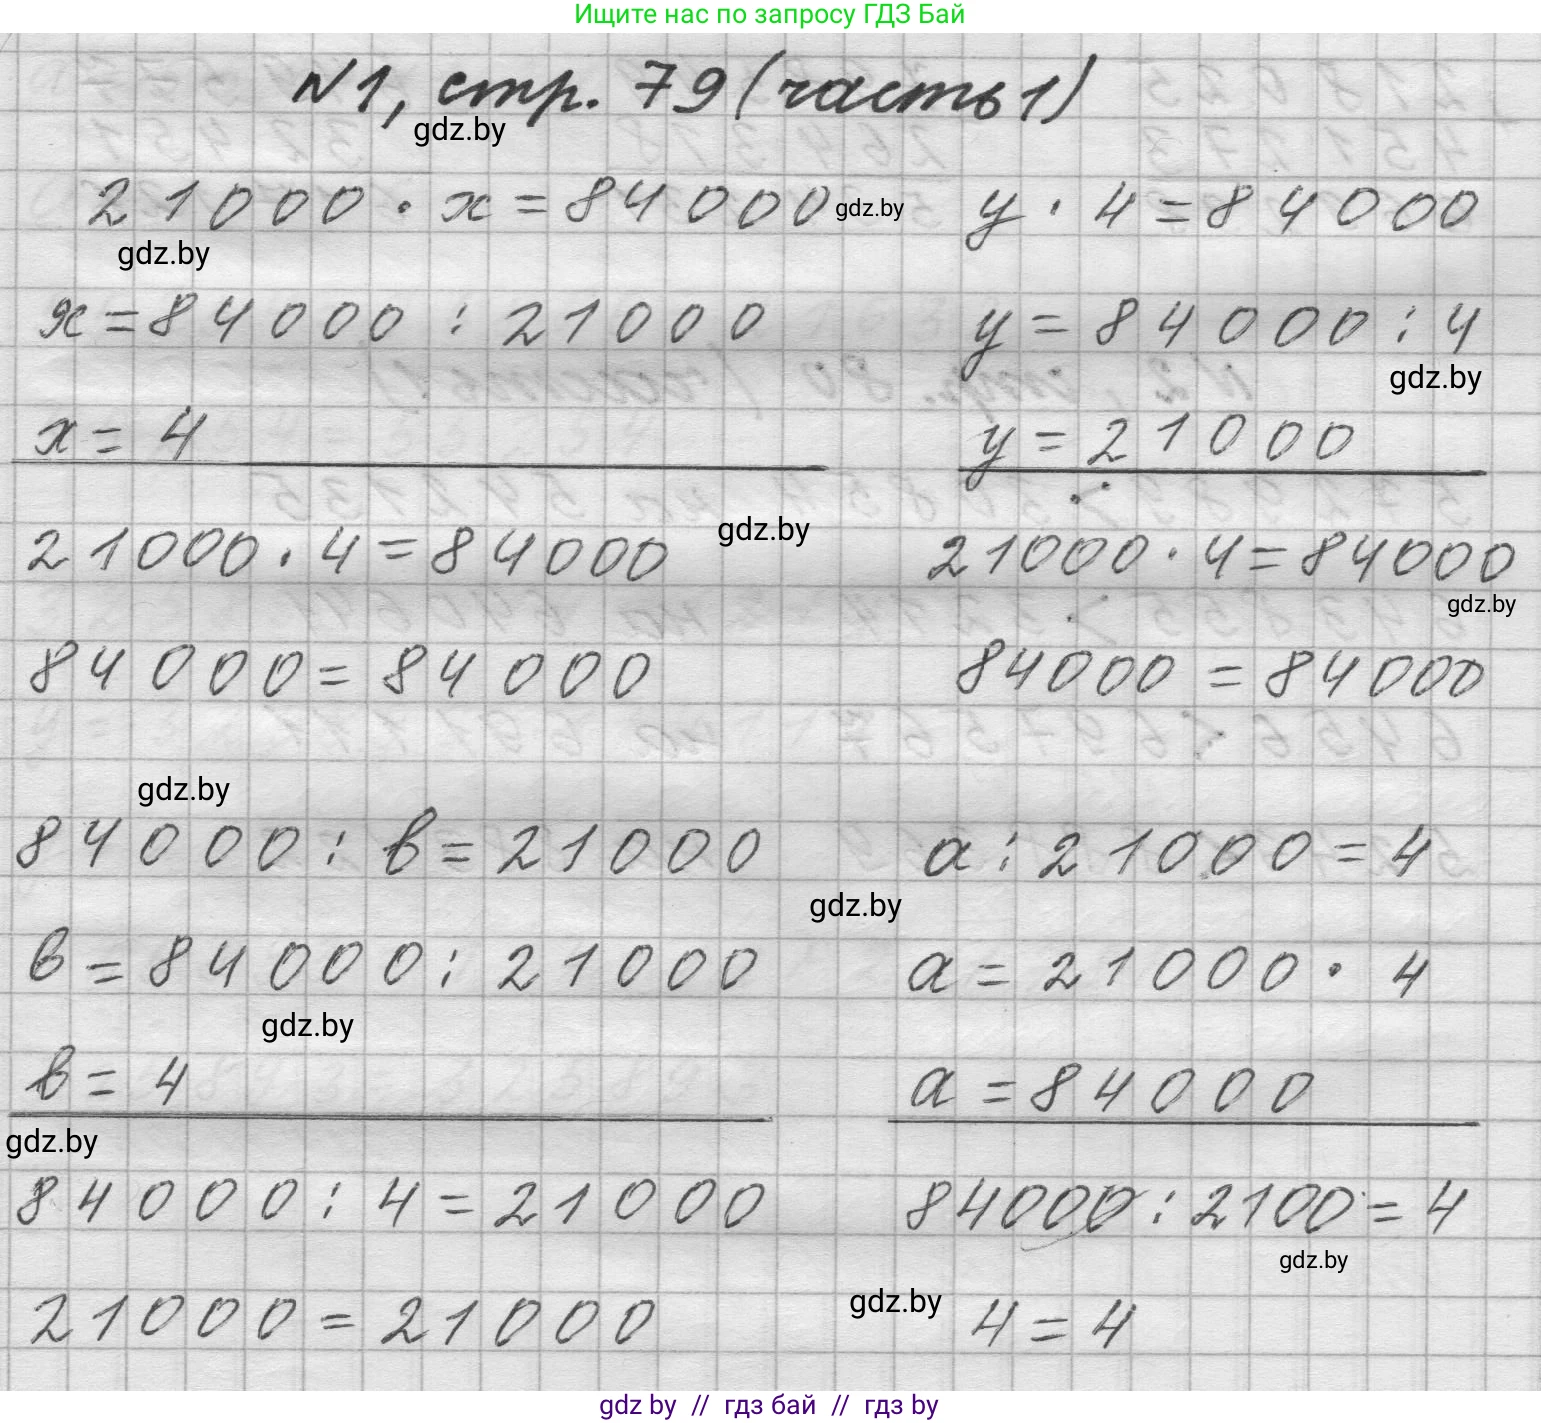 Ищите нас по запросу ГДЗ Бай
N1, стр. 79 (часть 1)
gdz.by
21000 · x = 84000 gdz.by y · 4 = 84000
gdz.by
x = 84000 : 21000 y = 84000 : 4
gdz.by
x = 4 y = 21000
gdz.by
21000 · 4 = 84000 21000 · 4 = 84000
gdz.by
84000 = 84000 84000 = 84000
gdz.by
84000 : в = 21000 а : 21000 = 4
gdz.by
в = 84000 : 21000 а = 21000 · 4
gdz.by
в = 4 а = 84000
gdz.by
84000 : 4 = 21000 84000 : 2100 = 4
gdz.by
21000 = 21000 gdz.by 4 = 4
gdz by // гдз бай // гдз by